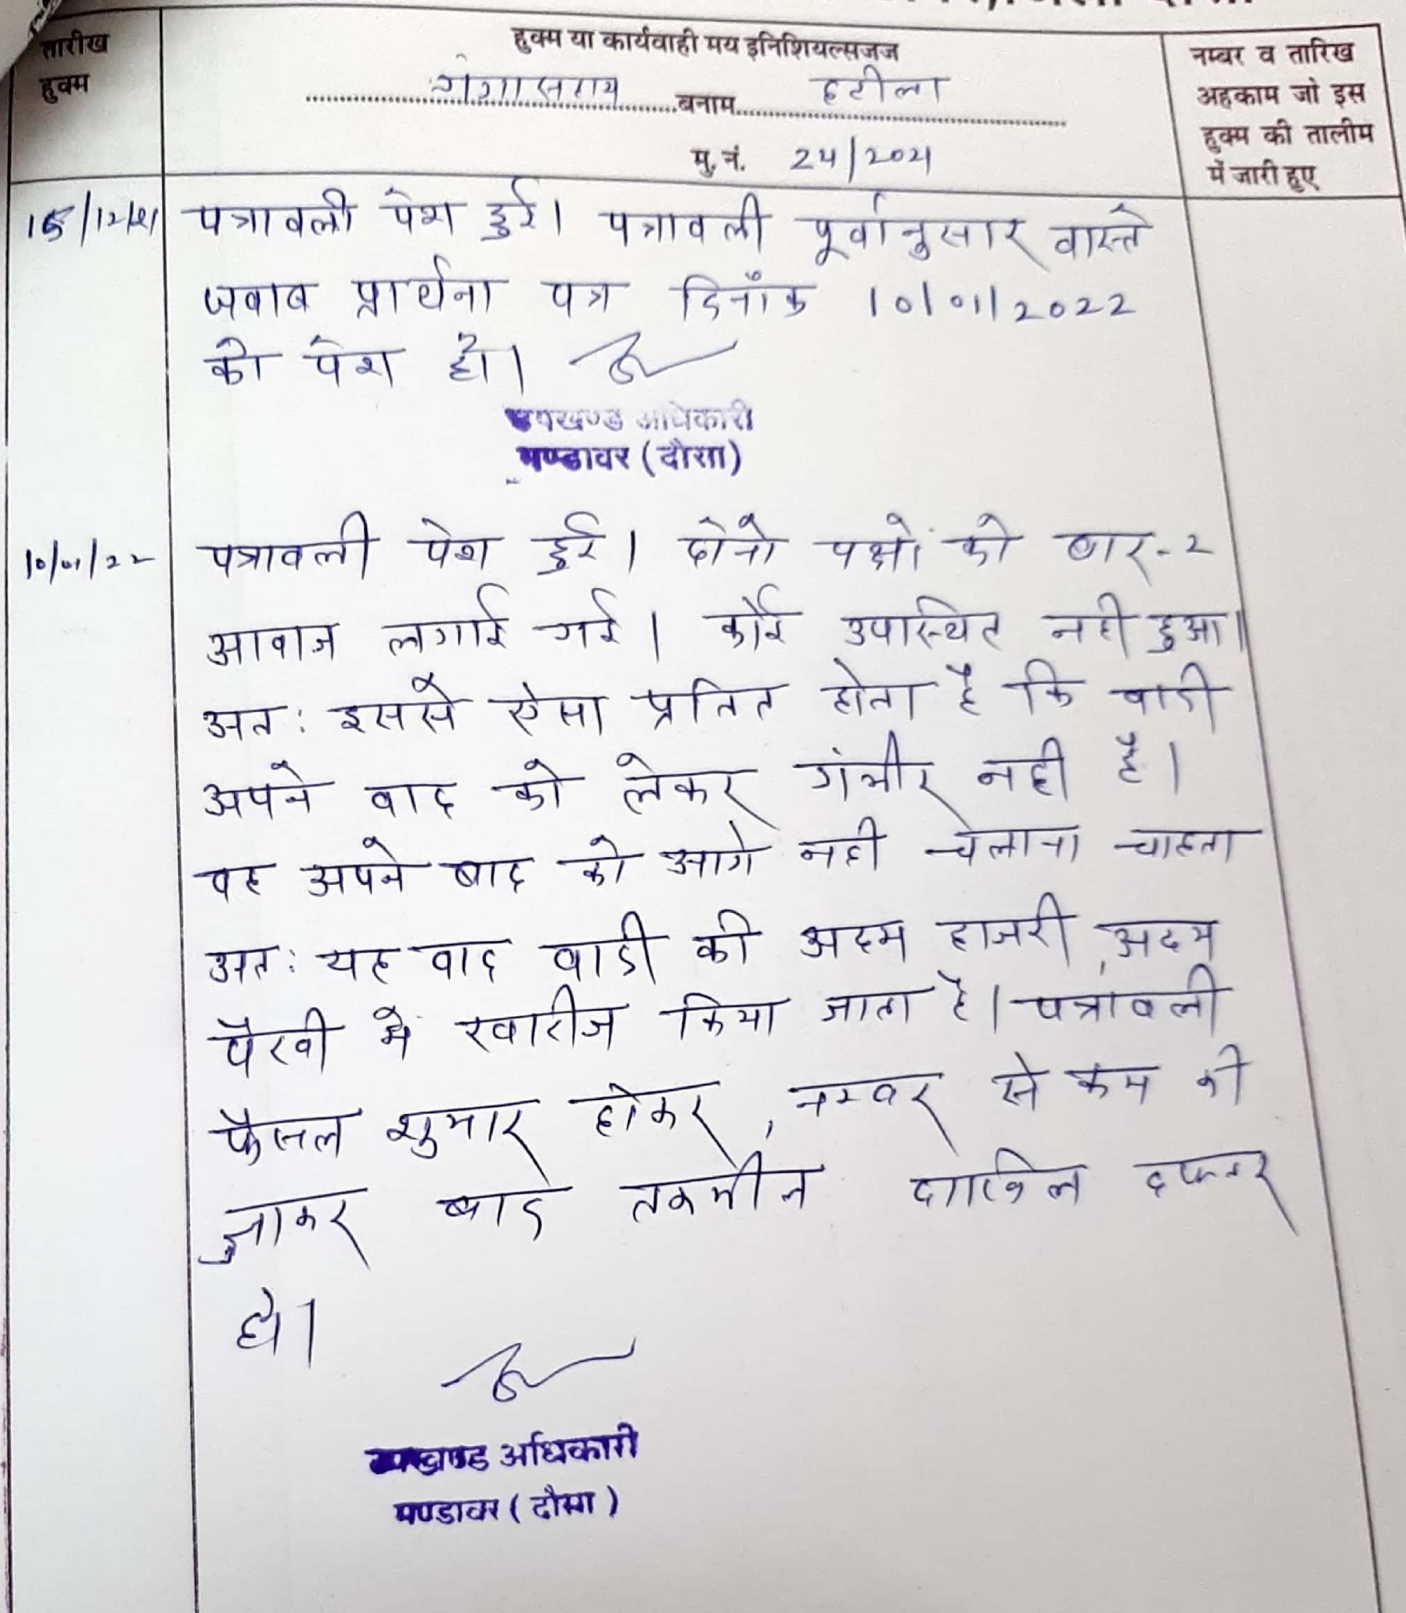 तारीख
हुक्म
हुक्म या कार्यवाही मय इनिशियल्सजज
गंगासहाय बनाम हटीला
मु. नं. 24/2021
नम्बर व तारिख
अहकाम जो इस
हुक्म की तालीम
में जारी हुए
15/12/21 पत्रावली पेश हुई। पत्रावली पूर्वानुसार वास्ते
जवाब प्रार्थना पत्र दिनाँक 10/01/2022
को पेश हो।
उपखण्ड अधिकारी
मण्डावर (दौसा)
10/01/22 पत्रावली पेश हुई। दोनो पक्षों को बार-2
आवाज लगाई गई। कोई उपस्थित नही हुआ।
अत: इससे ऐसा प्रतित होता है कि वादी
अपने वाद को लेकर गंभीर नही है।
वह अपने वाद को आगे नही चलाना चाहता
अत: यह वाद वादी की अदम हाजरी, अदम
पैरवी में खारीज किया जाता है। पत्रावली
फैसल शुमार होकर, नम्बर से कम की
जाकर बाद तकमील दाखिल दफ्तर
हो।
उपखण्ड अधिकारी
मण्डावर (दौसा)